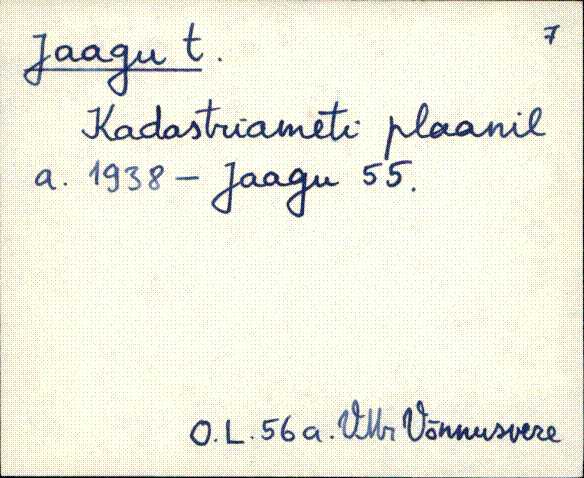 7
Jaagu t.
Kadastriameti plaanil
a. 1938 - Jaagu 55.
O.L. 56 a. VMr Võnnusvere